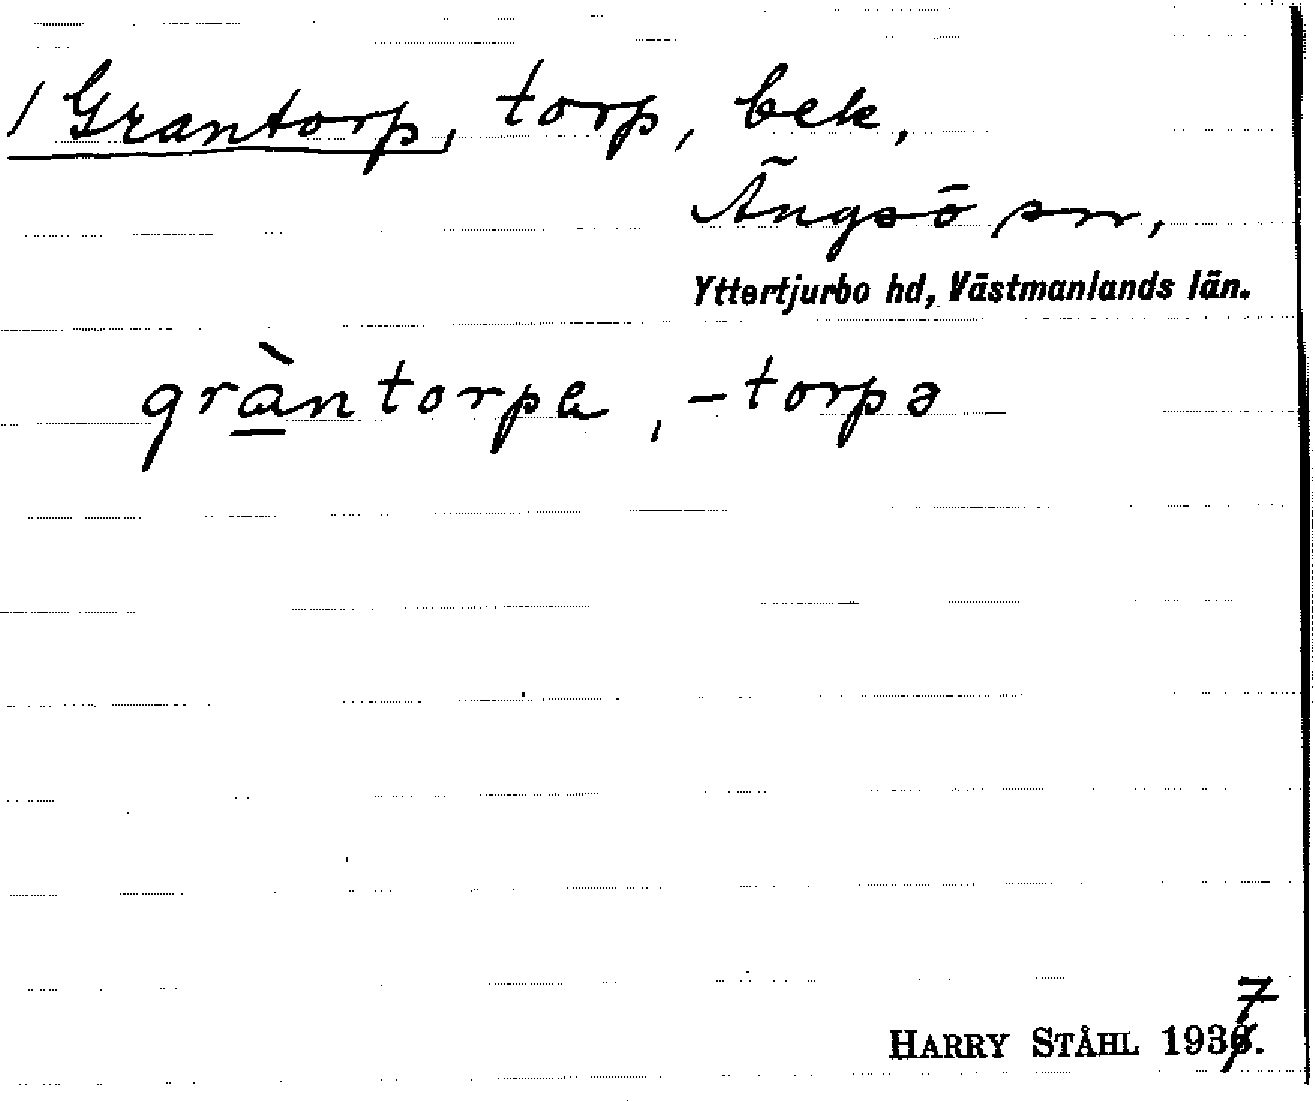 / Grantorp, torp, bek,
Ängsö sn,
Yttertjurbo hd, Västmanlands län.
gràntorpa, -torpə
7
HARRY STÅHL 1936.